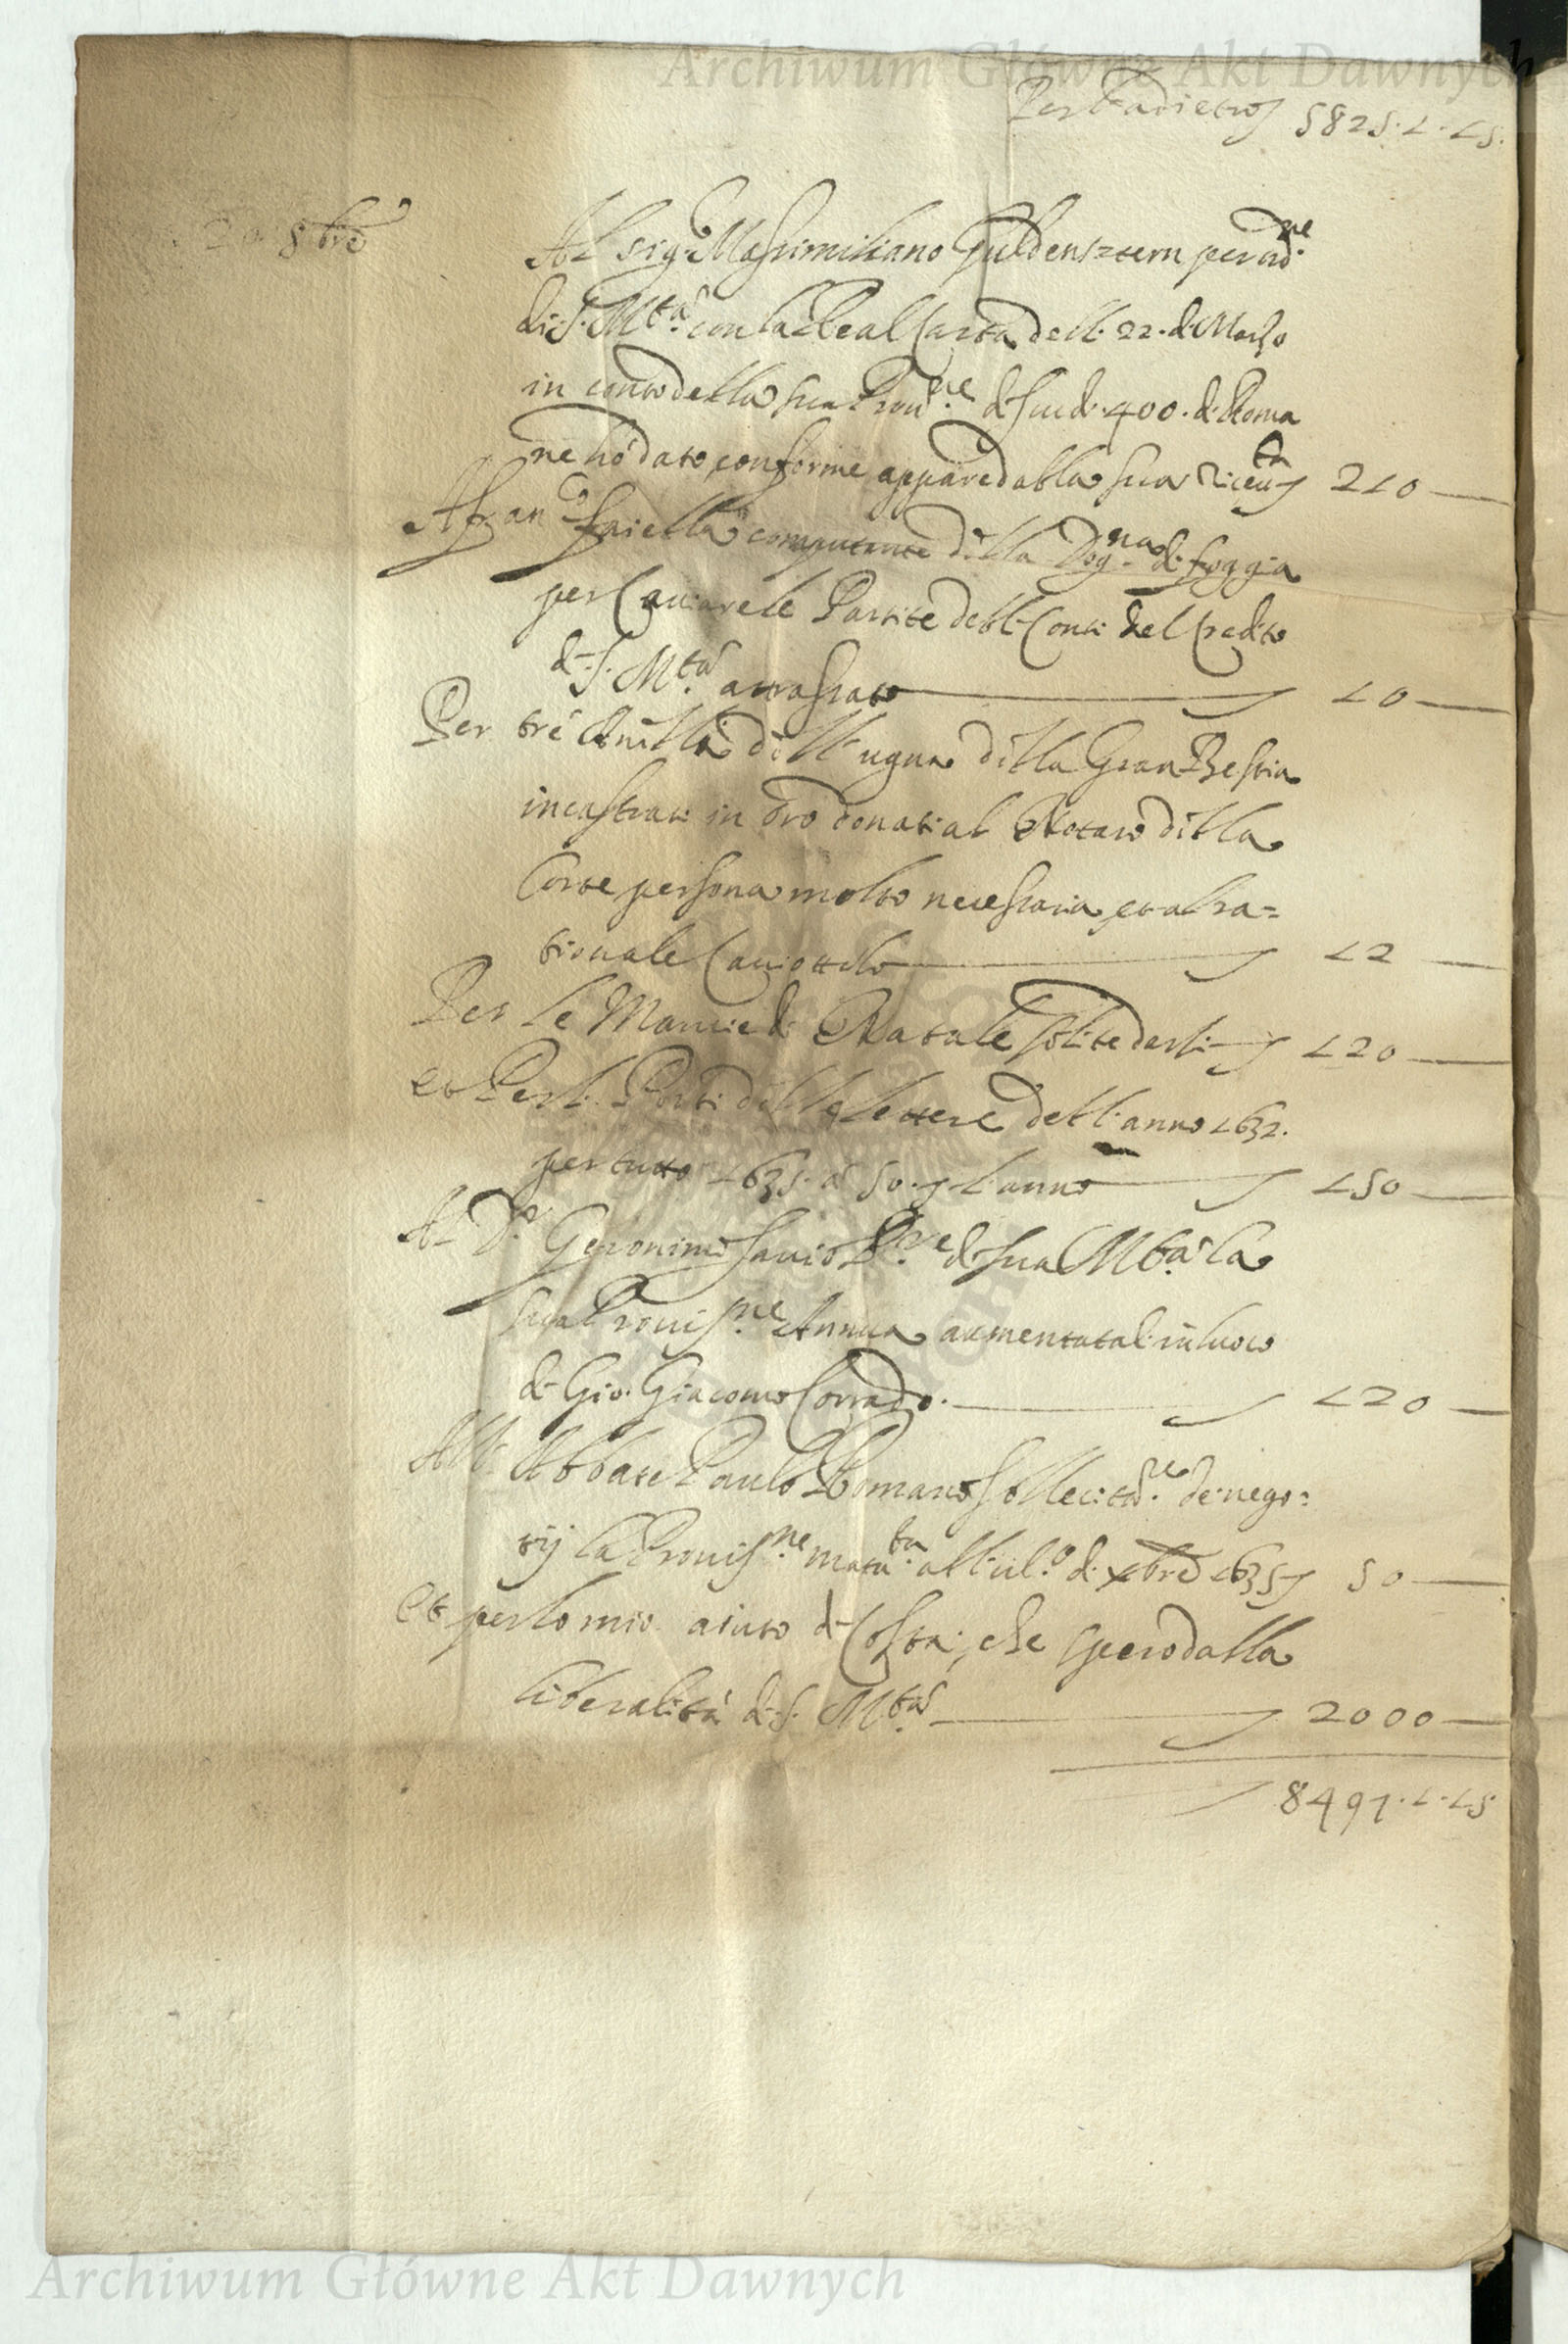 Archiwum Główne Akt Dawnych
Per l'adietro 5825.1.15.
20 8bre
Al sig.re Massimiliano Guldenstern per ord.ne
di S. M.tà con la Real Carta delli 22. di Marzo
in conto della sua Prou.ne di scudi 400. di Roma
ne hò dato, conforme appare dalla sua riceu.ta 210
A fran.co faiella computante della Dog.na di foggia
per Cauare le Partite delli Conti del Credito
di S. M.tà attrassato 10
Per trè Anella dell'ugna della Gran Bestia
incastrati in oro donati al Notaro della
Corte persona molto necessaria, et al ra=
tionale Cauottolo 12
Per le Mancie di Natale solite darsi 120
et Per li Porti delle lettere dell'anno 1632.
per tutto 1635. à 50. l'anno 150
A D. Geronimo sauio di sua M.tà la
sua Prouis.ne Annua aumentatali in luoco
di Gio. Giacomo Corrado. 120
All'Abbate Paulo Romano sollecit.re de nego=
tij la Prouis.ne matu.ta all'ul.o di xbre 1635 50
et per lo mio aiuto di Costa, che spero dalla
liberalità di S. M.tà 2000
8497.1.15.
Archiwum Główne Akt Dawnych